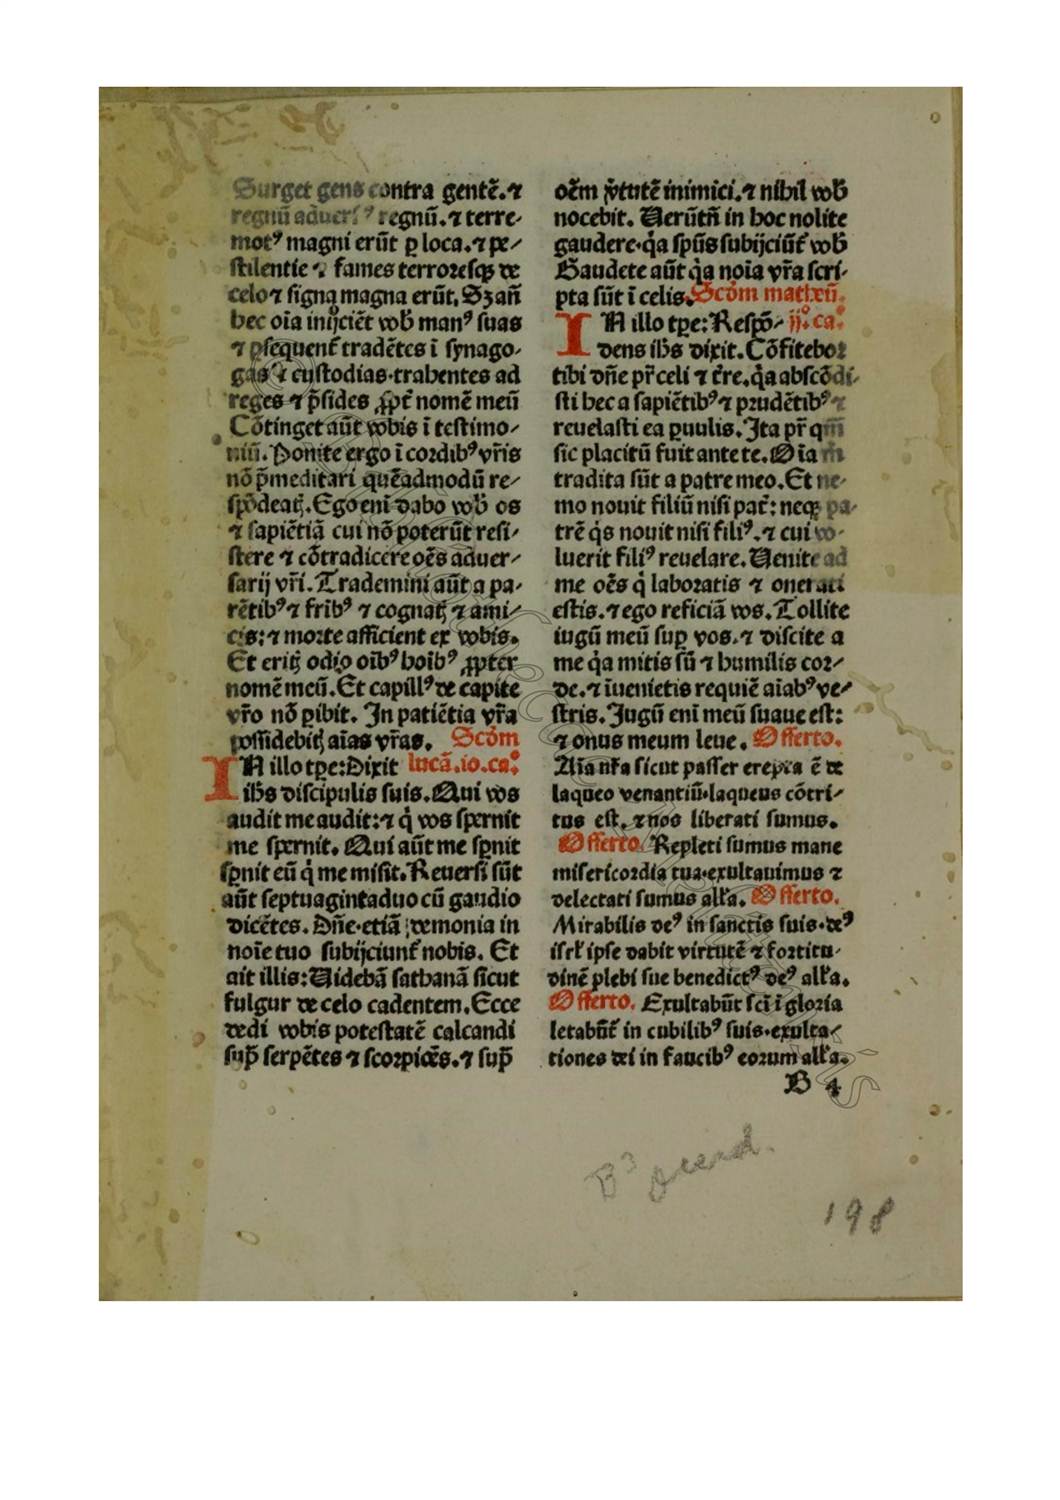 Surget gens contra gentē.⁊
regnū aduersꝰ regnū.⁊ terre-
motꝰ magni erūt ꝑ loca.⁊ pe-
stilentie ⁊ fames terroresqꝫ de
celo ⁊ signa magna erūt. Sꝫ añ
hec oīa inijciēt vob̄ manꝰ suas
⁊ ꝑsequent̄ tradētes ī synago-
gas ⁊ custodias·trahentes ad
reges ⁊ p̄sides ꝓpt̄ nomē meū
Cōtinget aūt vobis ī testimo-
niū. Ponite ergo ī cordibꝰ vr̄is
nō p̄meditari quēadmodū re-
spōdeatꝭ. Ego eni dabo vob̄ os
⁊ sapiētiā cui nō poterūt resi-
stere ⁊ cōtradicere oēs aduer-
sarij vr̄i. Trademini aūt a pa-
rētibꝰ ⁊ fr̄ibꝰ ⁊ cognatꝭ ⁊ ami-
cis: ⁊ morte afficient ex vobis.
Et eritꝭ odio oībꝰ hoībꝰ ꝓpter
nomē meū. Et capillꝰ de capite
vr̄o nō ꝑibit. In patiētia vr̄a
possidebitꝭ aīas vr̄as. Scōm
IN illo tꝑe: Dixit lucā.io.ca°.
ih̄s discipulis suis. Qui vos
audit me audit: ⁊ q̇ vos spernit
me spernit. Qui aūt me sꝑnit
sꝑnit eū q̇ me misit. Reuersi sūt
aūt septuagintaduo cū gaudio
dicētes. Dn̄e·etiā demonia in
noīe tuo subijciunt̄ nobis. Et
ait illis: Uidebā sathanā sicut
fulgur de celo cadentem. Ecce
dedi vobis potestatē calcandi
sup̄ serpētes ⁊ scorpiões.⁊ sup̄
oēm v̇tutē inimici.⁊ nihil vob̄
nocebit. Uerūtñ in hoc nolite
gaudere·q̇a sp̄ūs subijciūt̄ vob̄
Gaudete aūt q̇a noīa vr̄a scri-
pta sūt ī celis. Scōm matheū.
IN illo tꝑe: Respō- ij°.ca°.
dens ih̄s dixit. Cōfitebor
tibi dn̄e pr̄ celi ⁊ t̄re.q̇a abscōdi-
sti hec a sapiētibꝰ ⁊ prudētibꝰ ⁊
reuelasti ea ꝑuulis. Ita pr̄ qm̄
sic placitū fuit ante te. Oīa m̄
tradita sūt a patre meo. Et ne-
mo nouit filiū nisi pat̄: neqꝫ pa-
trē q̇s nouit nisi filiꝰ.⁊ cui vo-
luerit filiꝰ reuelare. Uenite ad
me oēs q̇ laboratis ⁊ onerati
estis.⁊ ego reficiā vos. Tollite
iugū meū suꝑ vos.⁊ discite a
me q̇a mitis sū ⁊ humilis cor-
de.⁊ īuenietis requiē aīabꝰ ve-
stris. Iugū eni meū suaue est:
⁊ onus meum leue. Offerto.
Aīa nr̄a sicut passer erepta ē de
laqueo venantiū·laqueus cōtri-
tus est.⁊ nos liberati sumus.
Offerto. Repleti sumus mane
misericordia tua·exultauimus ⁊
delectati sumus all'a. Offerto.
Mirabilis deꝰ in sanctis suis·deꝰ
isrl' ipse dabit virtutē ⁊ fortitu-
dinē plebi sue benedictꝰ deꝰ all'a.
Offerto. Exultabūt sc̄i ī gloria
letabūt̄ in cubilibꝰ suis·exulta-
tiones dei in faucibꝰ eorum all'a.
B 4
B3
198